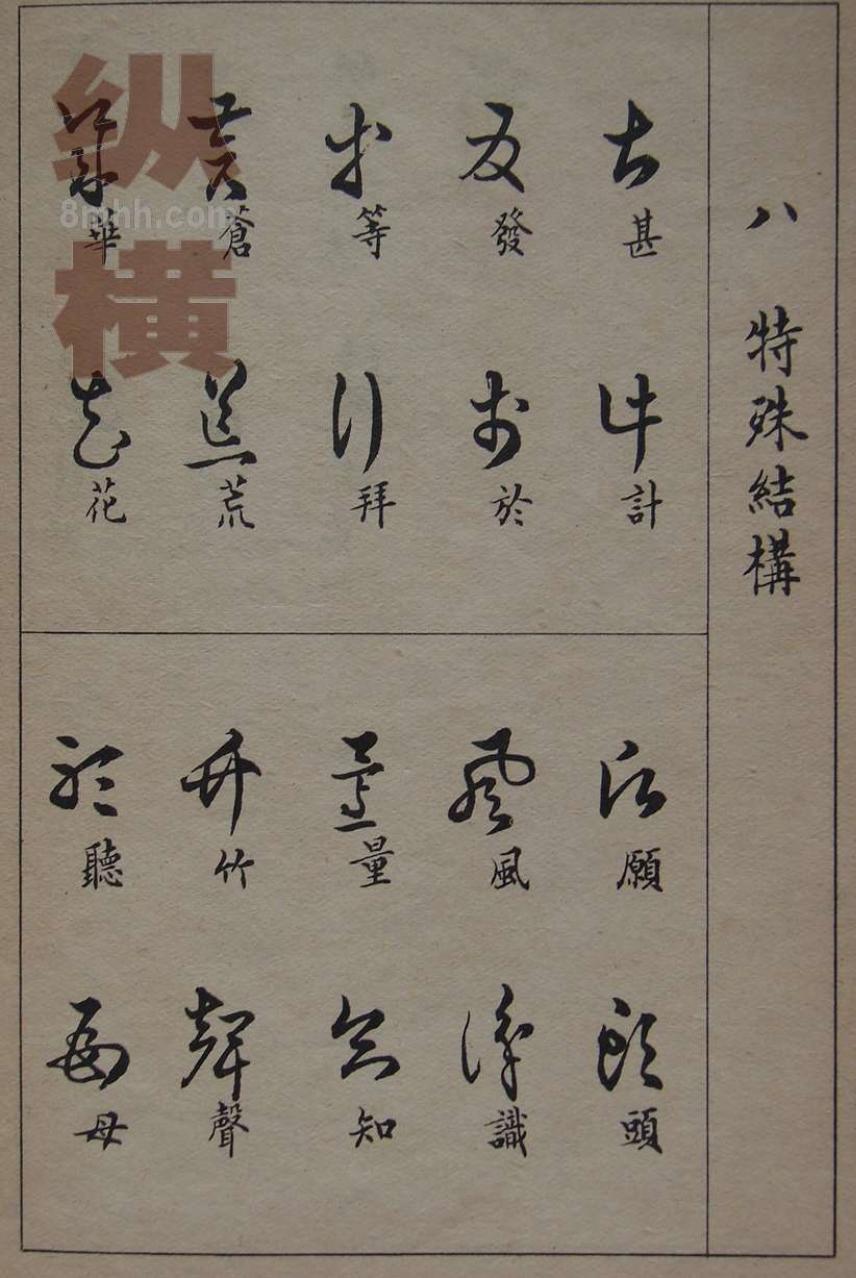 八 特殊結構
甚
計
發
於
等
拜
蒼
荒
華
花
願
頭
風
識
量
知
竹
聲
聽
母
纵横
8mhh.com